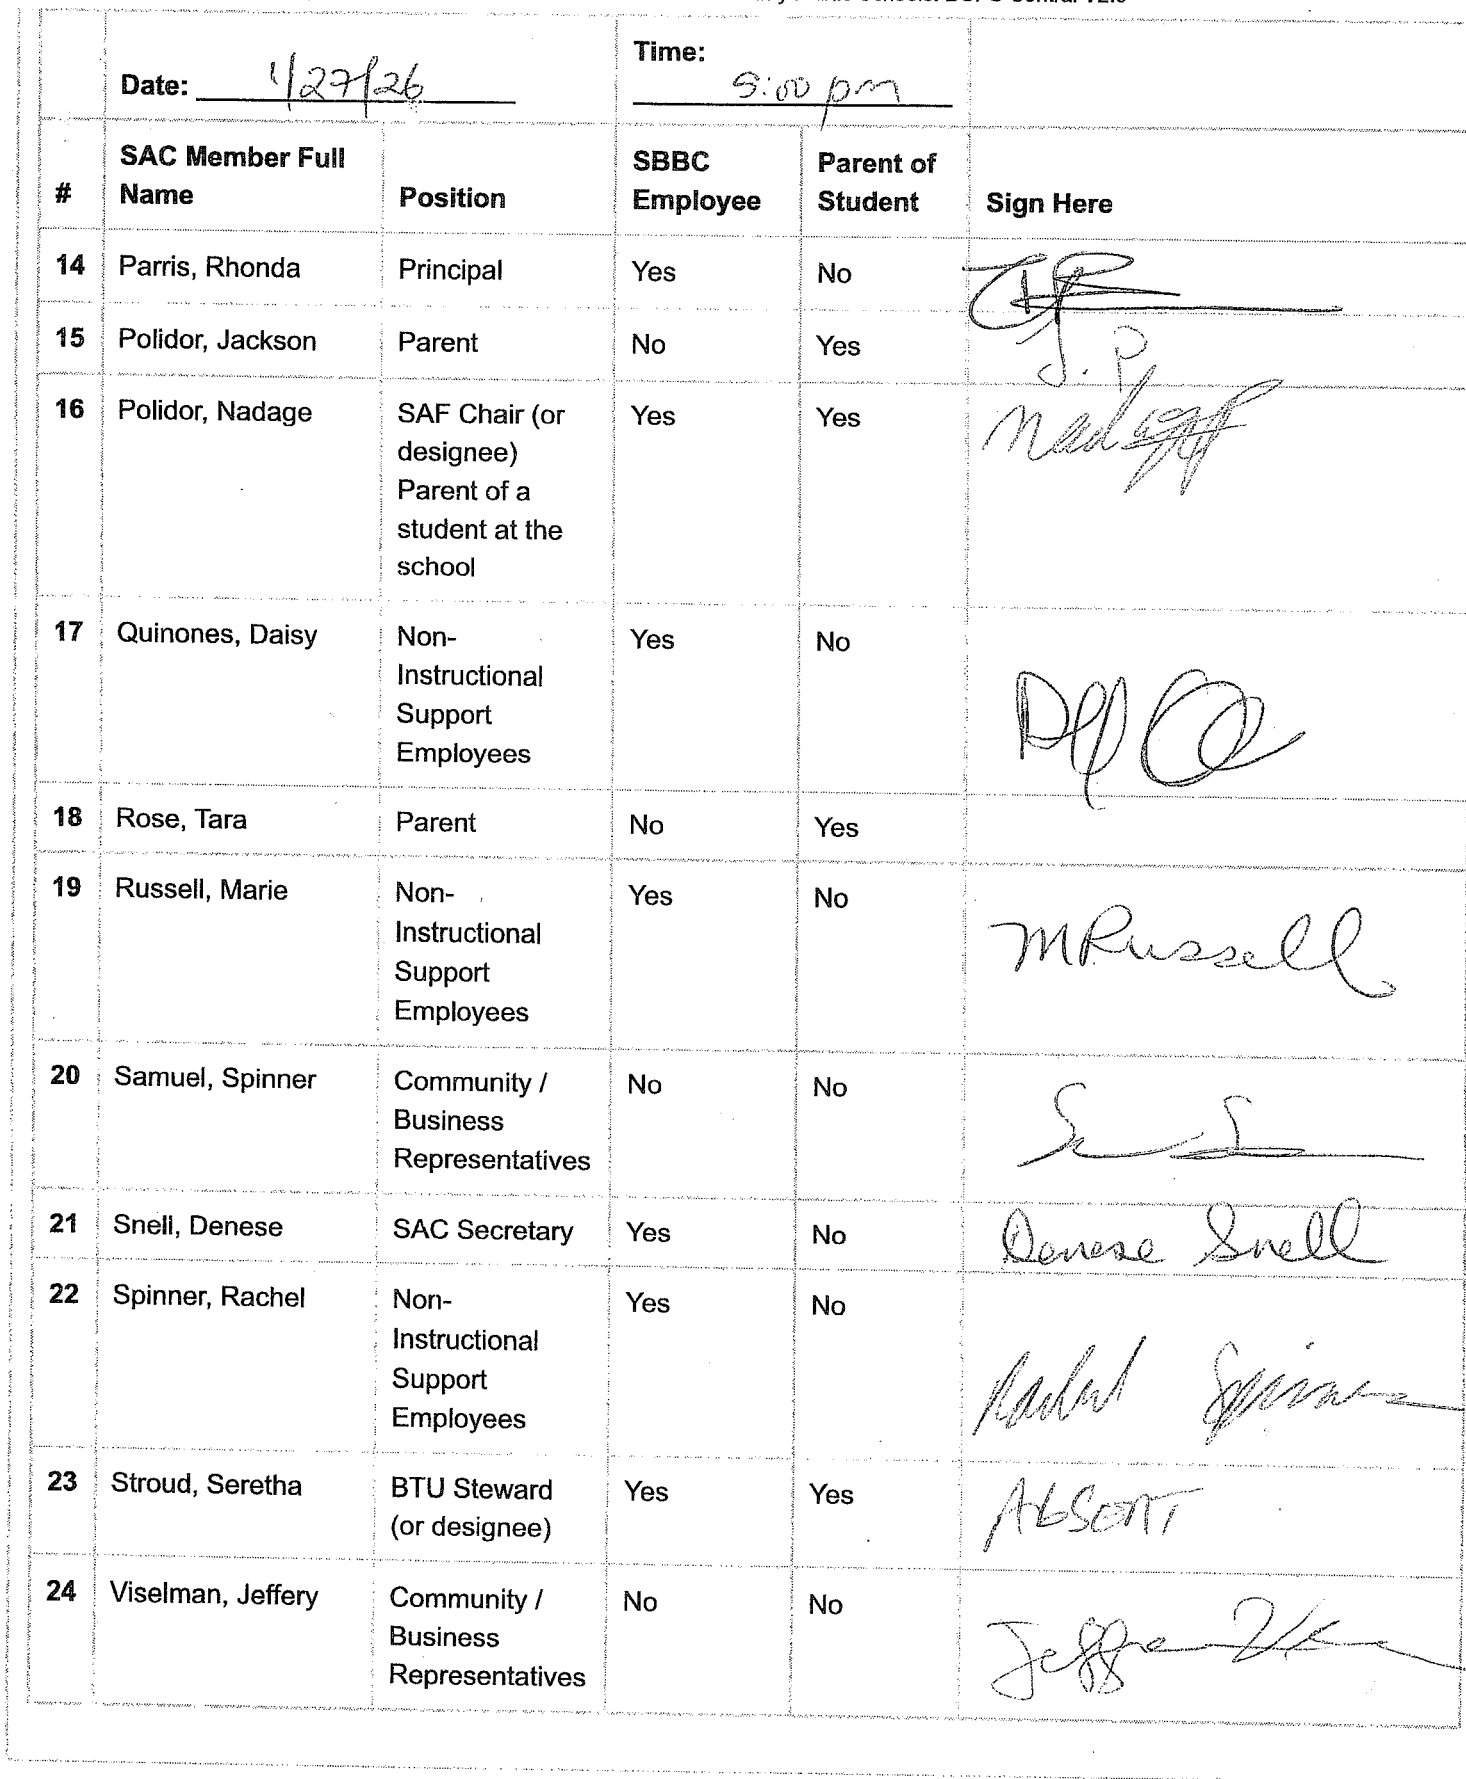 Date: 1/27/26
Time:
5:00 pm
# SAC Member Full Name Position SBBC Employee Parent of Student Sign Here
14 Parris, Rhonda Principal Yes No
15 Polidor, Jackson Parent No Yes J. P.
16 Polidor, Nadage SAF Chair (or
designee)
Parent of a
student at the
school Yes Yes
17 Quinones, Daisy Non-
Instructional
Support
Employees Yes No
18 Rose, Tara Parent No Yes
19 Russell, Marie Non-
Instructional
Support
Employees Yes No MRussell
20 Samuel, Spinner Community /
Business
Representatives No No
21 Snell, Denese SAC Secretary Yes No Denese Snell
22 Spinner, Rachel Non-
Instructional
Support
Employees Yes No Rachel Spinner
23 Stroud, Seretha BTU Steward
(or designee) Yes Yes AbSENT
24 Viselman, Jeffery Community /
Business
Representatives No No